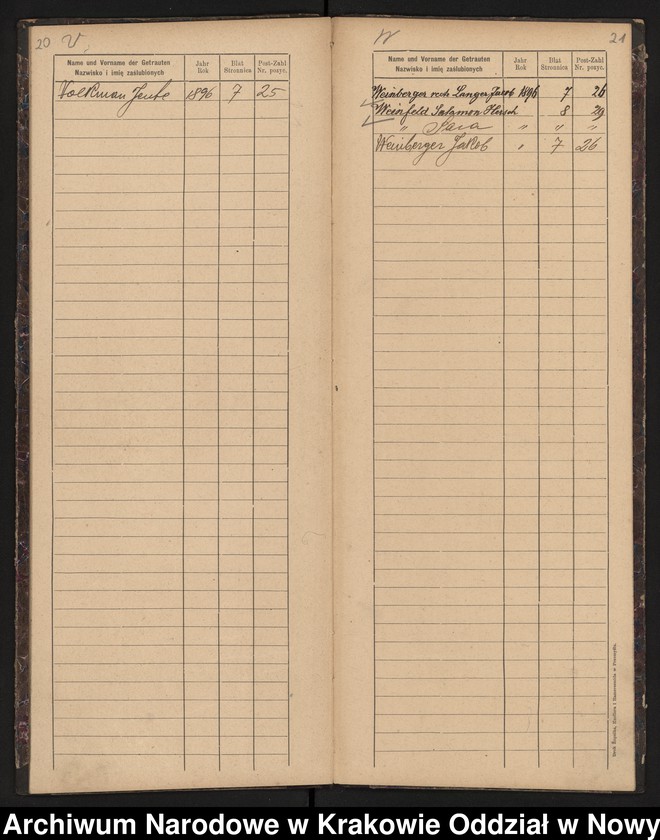 20 V
Name und Vorname der Getrauten Jahr Blat Post-Zahl
Nazwisko i imię zaślubionych Rok Stronnica Nr. pozyc.
Volkman Jente 1896 7 25
W 21
Name und Vorname der Getrauten Jahr Blat Post-Zahl
Nazwisko i imię zaślubionych Rok Stronnica Nr. pozyc.
Weinberger recte Langer Jacob 1896 7 26
Weinfeld Salzmon Hersch " 8 29
" Sara " " "
Weinberger Jakob " 7 26
Archiwum Narodowe w Krakowie Oddział w Nowy